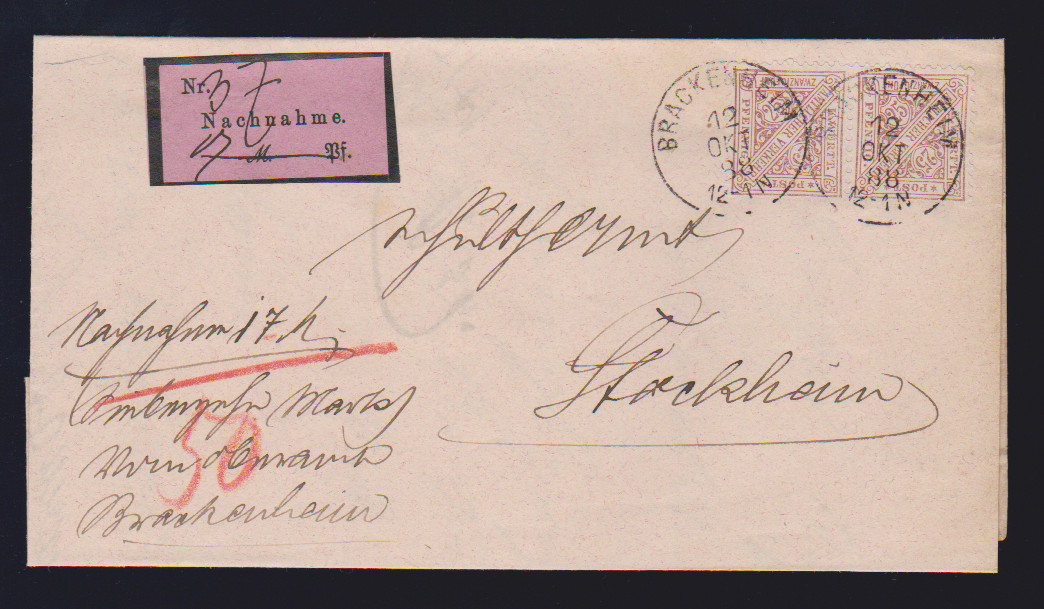 Nr. 37
Nachnahme.
17 M. Pf.
BRACKENHEIM
12
OKT
88
12-1N
BRACKENHEIM
12
OKT
88
12-1N
Schultheißenamt
Stockheim
Nachnahme 17 M.
Siebenzehn Mark
Vom Oberamt
Brackenheim
50